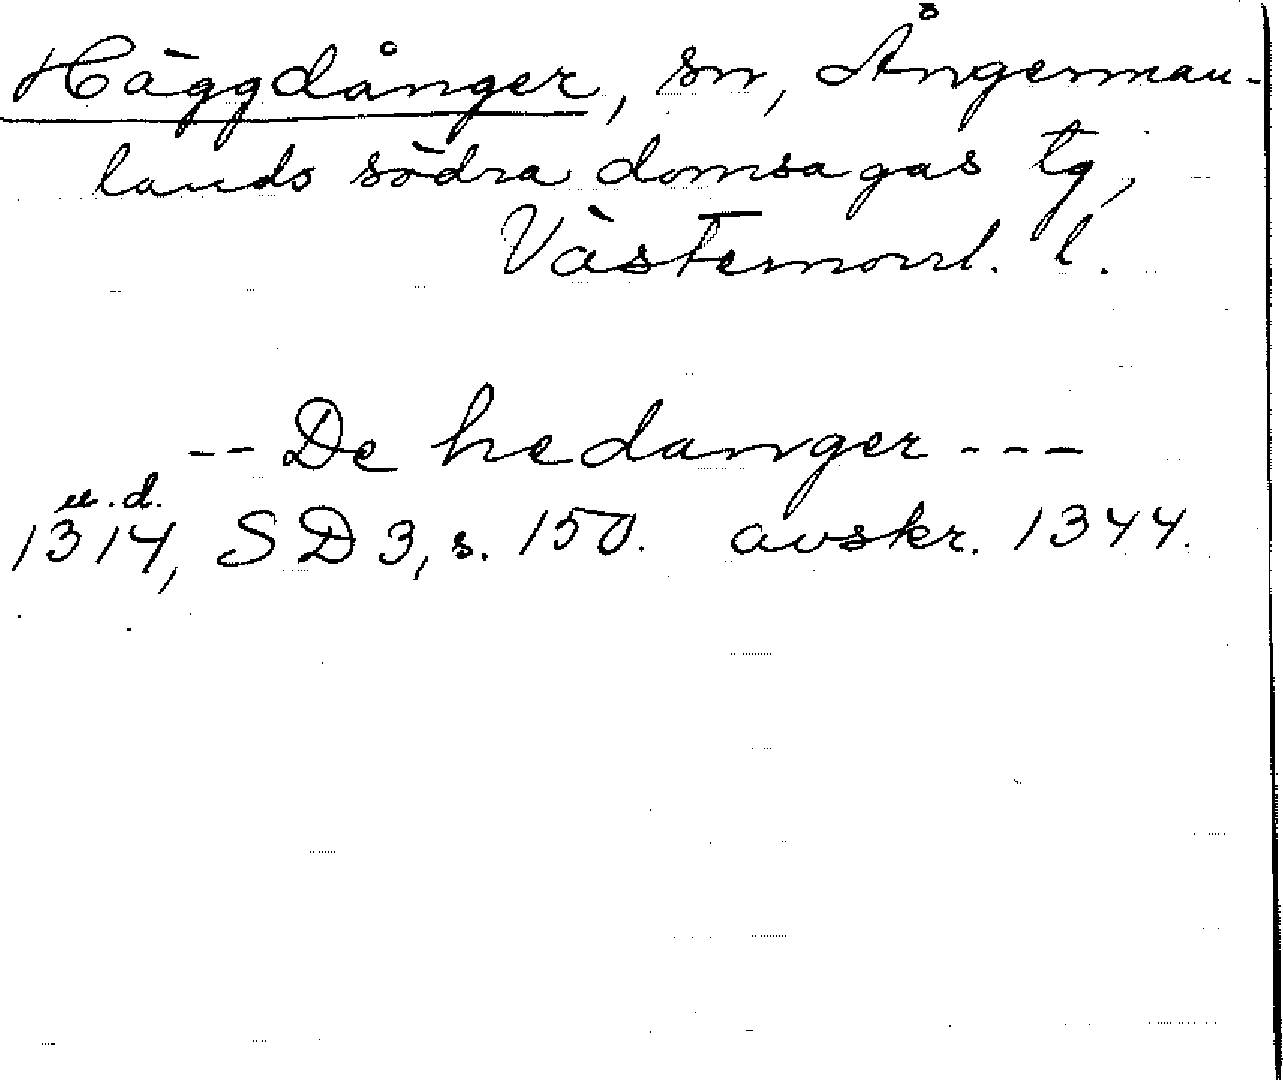 Häggdånger, sn, Ångerman-
lands södra domsagas tg,
Västernorrl. l.
-- De hedanger ---
u.d.
1314, SD 3, s. 150. avskr. 1344.